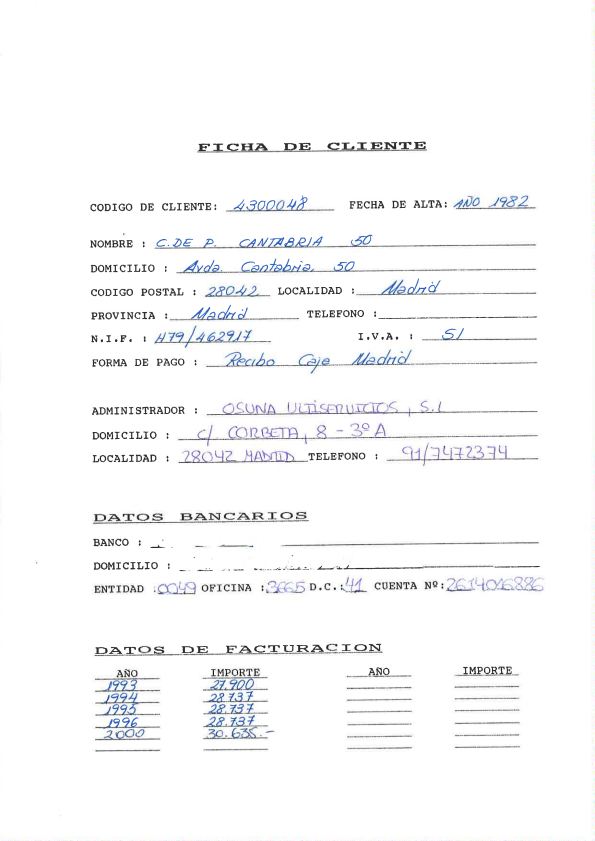 FICHA DE CLIENTE
CODIGO DE CLIENTE: 4300048 FECHA DE ALTA: AÑO 1982
NOMBRE : C. DE P. CANTABRIA 50
DOMICILIO : Avda. Cantabria, 50
CODIGO POSTAL : 28042 LOCALIDAD : Madrid
PROVINCIA : Madrid TELEFONO :
N.I.F. : H79/462917 I.V.A. : SI
FORMA DE PAGO : Recibo Caje Madrid
ADMINISTRADOR : OSUNA ULTISERVICIOS, S.L
DOMICILIO : C/ CORBETA, 8 - 3º A
LOCALIDAD : 28042 MADRID TELEFONO : 91/7472374
DATOS BANCARIOS
BANCO :
DOMICILIO :
ENTIDAD :0049 OFICINA :3665 D.C.:41 CUENTA Nº:2614016886
DATOS DE FACTURACION
AÑO IMPORTE AÑO IMPORTE
1993 27.900
1994 28.737
1995 28.737
1996 28.737
2000 30.635.-